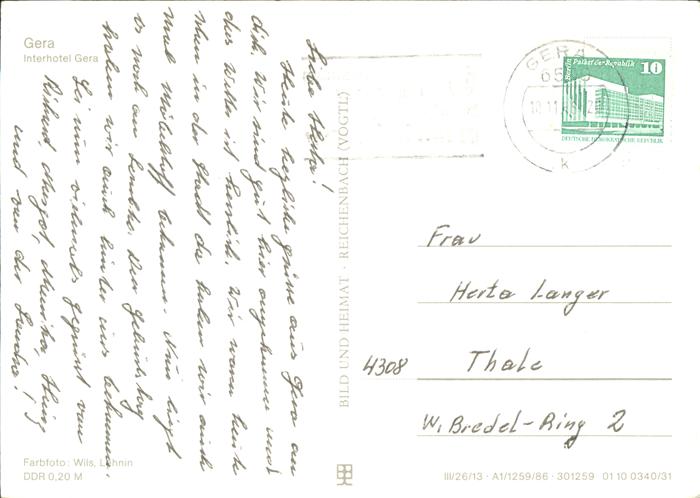 Gera
Interhotel Gera
Liebe Herta!
Heute herzliche Grüße aus Gera an
dich. Wir sind gut hier angekommen und
das Wetter ist herrlich. Wir waren heute
schon in der Stadt da haben wir auch
mal Mittelstoff bekommen. Nun liegt
es noch an Den Geburtstag
haben wir auch hinter uns bekommen.
Sei nun vielmals gegrüßt von
Richard, Margot, Monika, Harry
und von der Landra!
Farbfoto: Wils, Lehnin
DDR 0,20 M
BILD UND HEIMAT · REICHENBACH (VOGTL)
GERA
65
k
Berlin Palast der Republik
10
DEUTSCHE DEMOKRATISCHE REPUBLIK
Frau
Herta Langer
4308 Thale
W. Bredel-Ring 2
III/26/13 · A1/1259/86 · 301259 01 10 0340/31